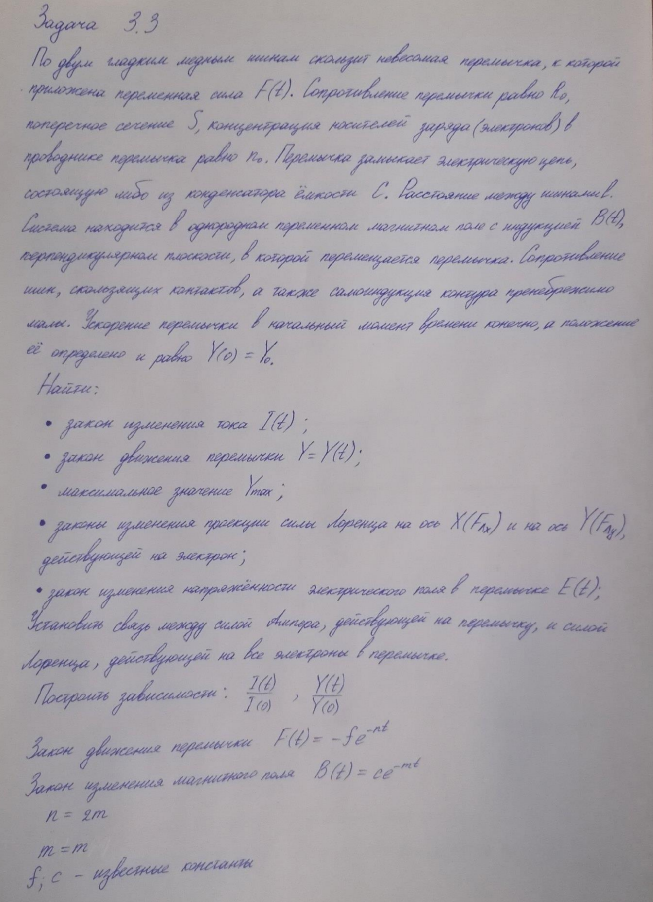 Задача 3.3
По двум гладким медным шинам скользит невесомая перемычка, к которой
приложена переменная сила F(t). Сопротивление перемычки равно R₀,
поперечное сечение S, концентрация носителей заряда (электронов) в
проводнике перемычка равно n₀. Перемычка замыкает электрическую цепь,
состоящую либо из конденсатора ёмкости C. Расстояние между шинами в.
Система находится в однородном переменном магнитном поле с индукцией B(t),
перпендикулярном плоскости, в которой перемещается перемычка. Сопротивление
шин, скользящих контактов, а также самоиндукция контура пренебрежимо
малы. Ускорение перемычки в начальный момент времени конечно, а положение
её определено и равно Y(0) = Y₀.
Найти:
• закон изменения тока I(t);
• закон движения перемычки Y=Y(t);
• максимальное значение Ymax;
• законы изменения проекции силы Лоренца на ось X(Fлx) и на ось Y(Fлy),
действующей на электрон;
• закон изменения напряжённости электрического поля в перемычке E(t);
Установить связь между силой Ампера, действующей на перемычку, и силой
Лоренца, действующей на все электроны в перемычке.
Построить зависимости: I(t)/I(0) , Y(t)/Y(0)
Закон движения перемычки F(t) = -fe^-nt
Закон изменения магнитного поля B(t) = ce^-mt
n = 2m
m = m
f; c - известные константы